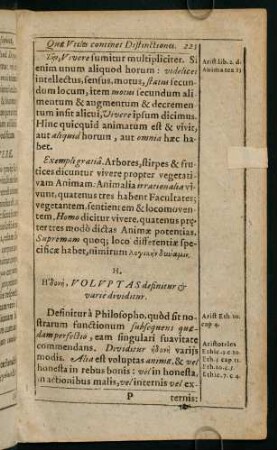 Quæ Vitæ continet Distinctiones. 221
Ζῆν, Vivere sumitur multipliciter. Si
enim unum aliquod horum: videlicet
intellectus, sensus, motus, status secun-
dum locum, item motus secundum ali-
mentum & augmentum & decremen-
tum insit alicui, Vivere ipsum dicimus.
Hinc quicquid animatum est & vivit,
aut aliquid horum, aut omnia hæc ha-
bet.
Arist lib. 2. de
Anima tex. 13
Exempli gratiâ. Arbores, stirpes & fru-
tices dicuntur vivere propter vegetati-
vam Animam: Animalia irrationalia vi-
vunt, quatenus tres habent Facultates;
vegetantem, sentientem & locomoven-
tem. Homo dicitur vivere, quatenus præ-
ter tres modò dictas Animæ potentias,
Supremam quoq; loco differentiæ spe-
cificæ habet, nimirum λογικὴν δύναμιν.
H.
Ἡδονὴ, VOLVPTAS definitur &
variè dividitur.
Definitur à Philosopho, quòd sit no-
strarum functionum subsequens quæ-
dam perfectio, eam singulari suavitate
commendans. Dividitur ἡδονὴ varijs
modis. Alia est voluptas animæ, & vel
honesta in rebus bonis: vel in honesta,
in actionibus malis, vel internis vel ex-
Arist Eth. 10.
cap 4.
Aristoteles
P
ternis: